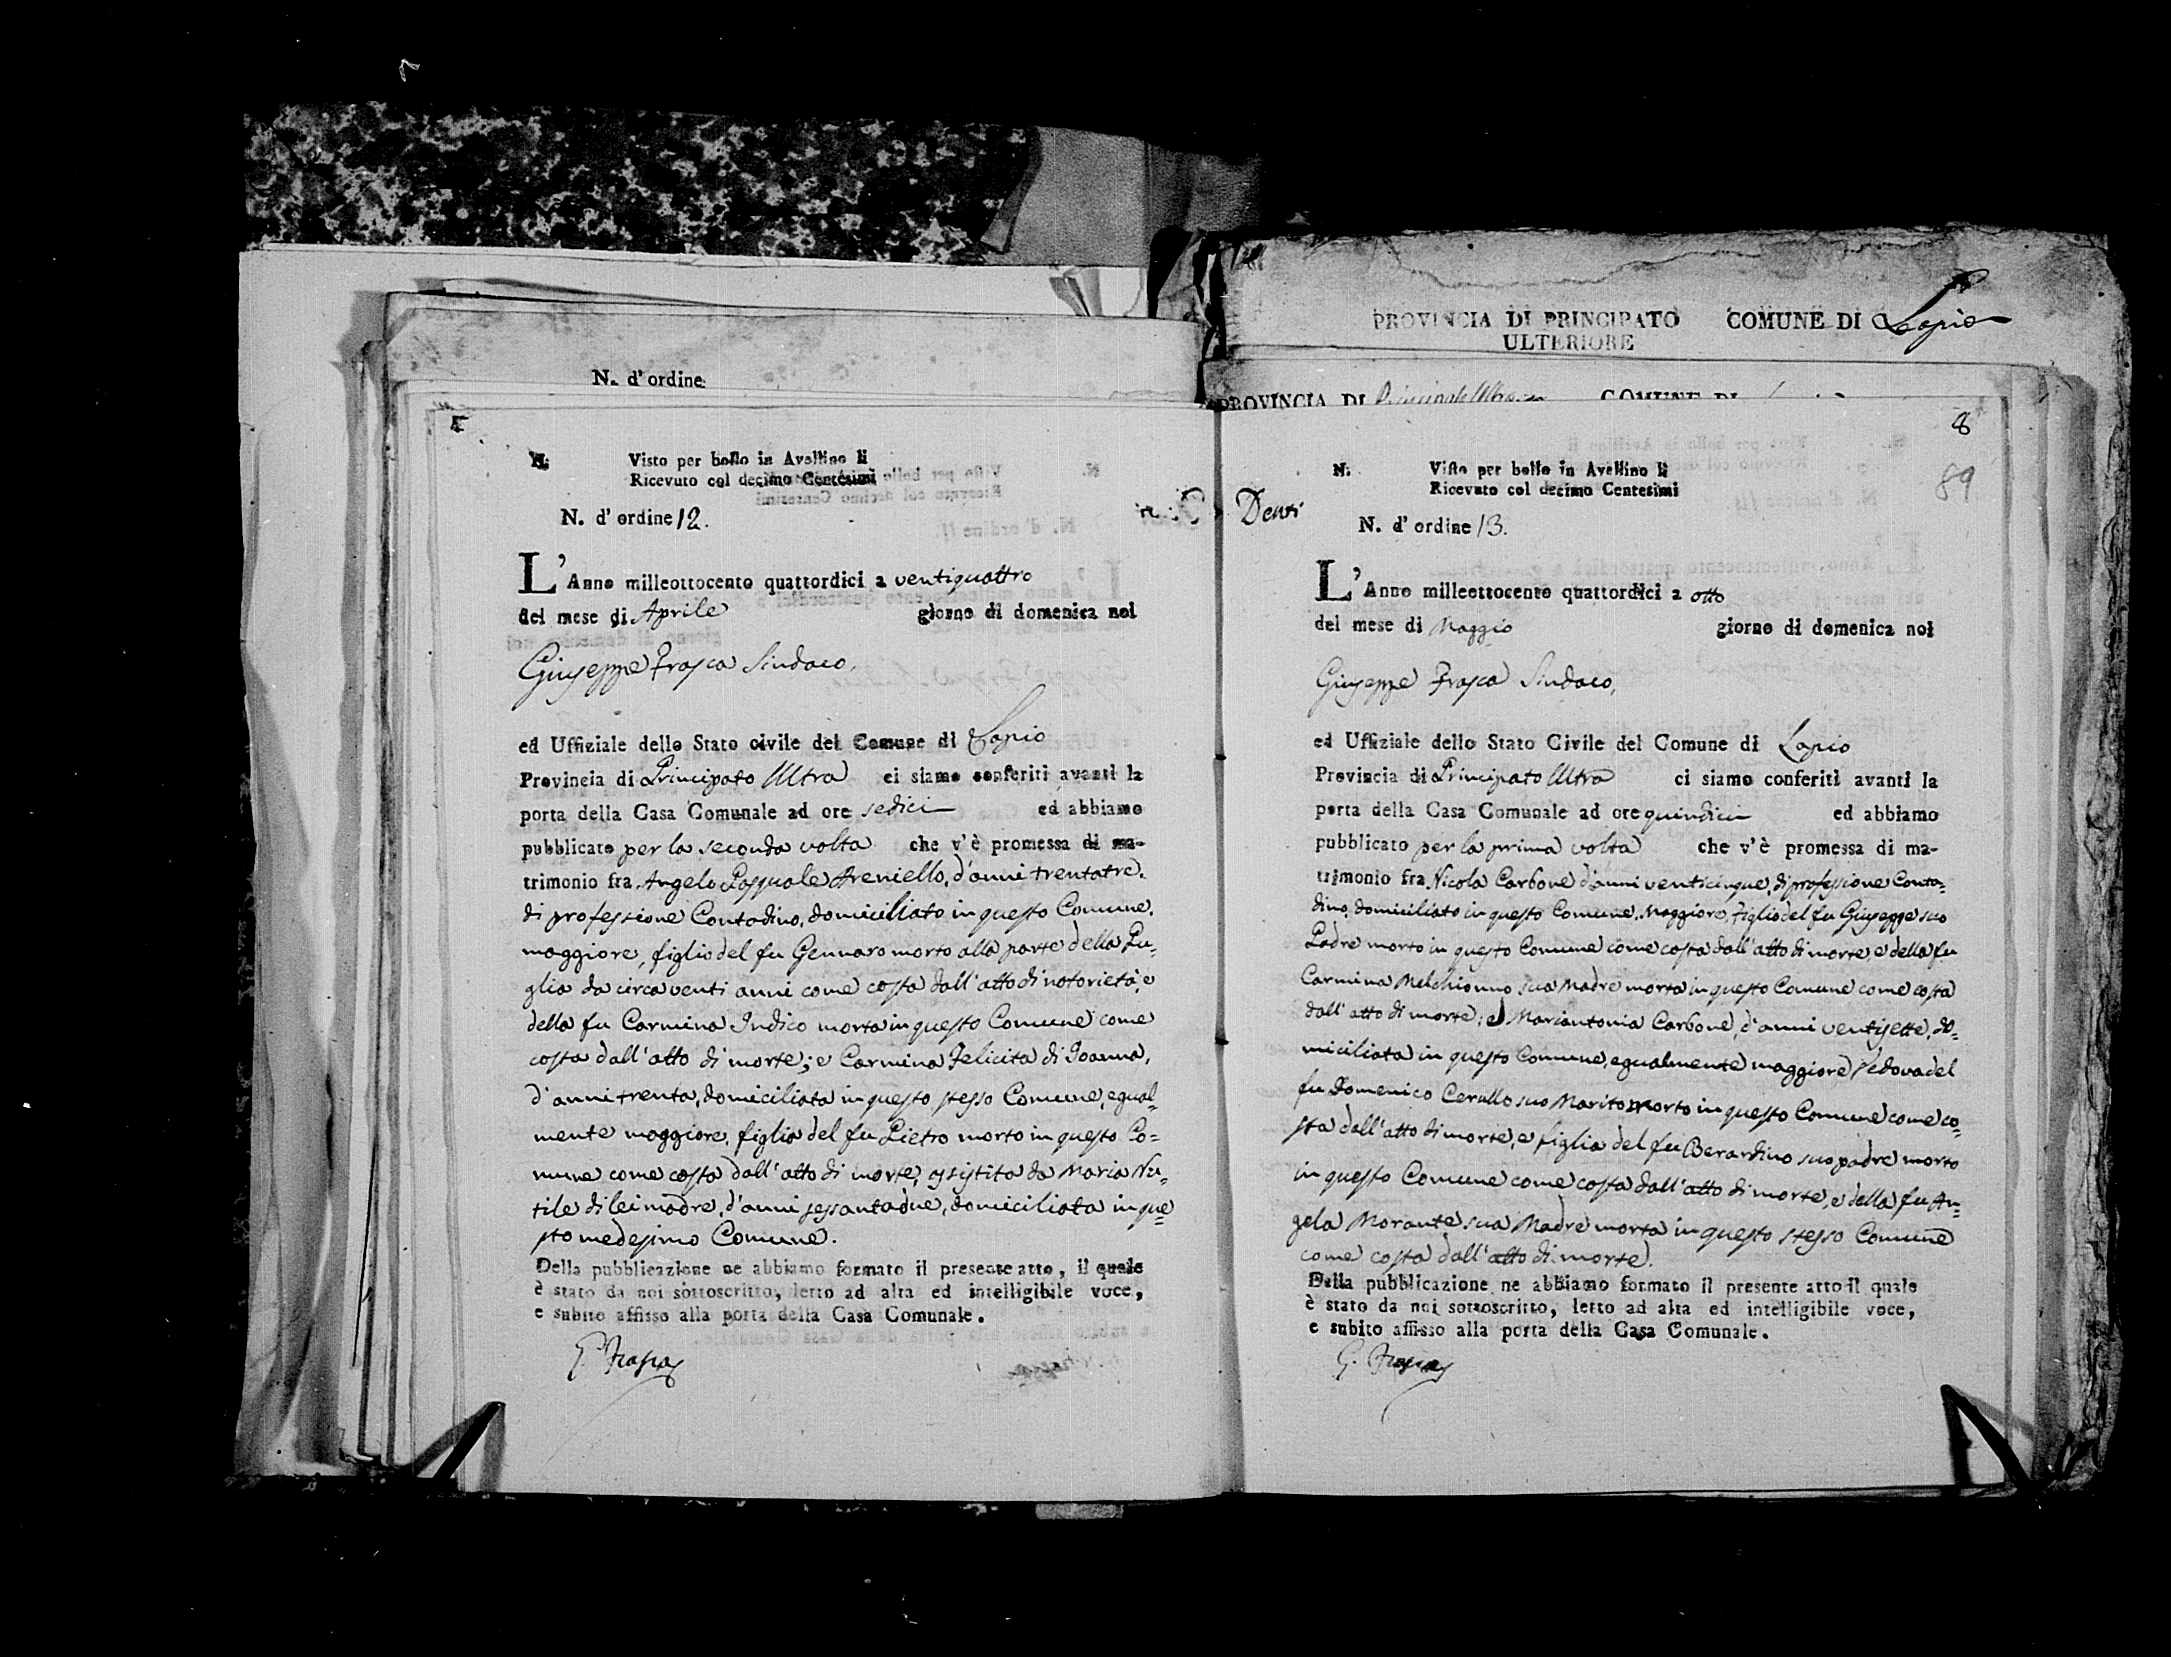 PROVINCIA DI PRINCIPATO COMUNE DI Lapio
ULTERIORE
N. d'ordine
PROVINCIA DI COMUNE DI
N. Visto per bollo in Avellino li
Ricevuto col decimo Centesimi
N. d'ordine 12.
L'Anno milleottocento quattordici a ventiquattro
del mese di Aprile giorno di domenica noi
Giuseppe Frasca Sindaco,
ed Uffiziale dello Stato civile del Comune di Lapio
Provincia di Principato Ultra ci siamo conferiti avanti la
porta della Casa Comunale ad ore sedici ed abbiamo
pubblicato per la seconda volta che v'è promessa di ma-
trimonio fra Angelo Pasquale Areniello, d'anni trentatre,
di professione Contadino, domiciliato in questo Comune,
maggiore, figlio del fu Gennaro morto alla parte della Pu=
glia da circa venti anni come costa dall'atto di notorietà, e
della fu Carmina Indico morta in questo Comune come
costa dall'atto di morte; e Carmina Felicita di Joanna,
d'anni trenta, domiciliata in questo stesso Comune, egual=
mente maggiore, figlia del fu Pietro morto in questo Co=
mune come costa dall'atto di morte, assistita da Maria Nu=
tile di lei madre, d'anni sessantadue, domiciliata in que=
sto medesimo Comune.
Della pubblicazione ne abbiamo formato il presente atto, il quale
è stato da noi sottoscritto, letto ad alta ed intelligibile voce,
e subito affisso alla porta della Casa Comunale.
G. Frasca
8
89
Denti
N. Visto per bollo in Avellino li
Ricevuto col decimo Centesimi
N. d'ordine 13.
L'Anno milleottocento quattordici a otto
del mese di Maggio giorno di domenica noi
Giuseppe Frasca Sindaco,
ed Uffiziale dello Stato Civile del Comune di Lapio
Provincia di Principato Ultra ci siamo conferiti avanti la
porta della Casa Comunale ad ore quindici ed abbiamo
pubblicato per la prima volta che v'è promessa di ma-
trimonio fra Nicola Carbone d'anni venticinque, di professione Conta=
dino, domiciliato in questo Comune, Maggiore, figlio del fu Giuseppe suo
Padre morto in questo Comune come costa dall'atto di morte, e della fu
Carmina Melchionno sua Madre morta in questo Comune come costa
dall'atto di morte; e Mariantonia Carbone, d'anni ventisette, do=
miciliata in questo Comune, egualmente maggiore, Vedova del
fu Domenico Cerullo suo Marito morto in questo Comune come co=
sta dall'atto di morte, e figlia del fu Berardino suo padre morto
in questo Comune come costa dall'atto di morte, e della fu An=
gela Morante sua Madre morta in questo stesso Comune
come costa dall'atto di morte.
Della pubblicazione ne abbiamo formato il presente atto il quale
è stato da noi sottoscritto, letto ad alta ed intelligibile voce,
e subito affisso alla porta della Casa Comunale.
G. Frasca